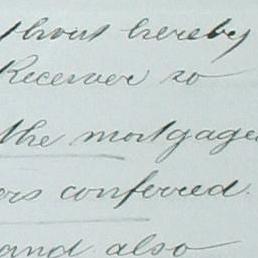 thout hereby
Receiver so
the mortgage
ers conferred
and also